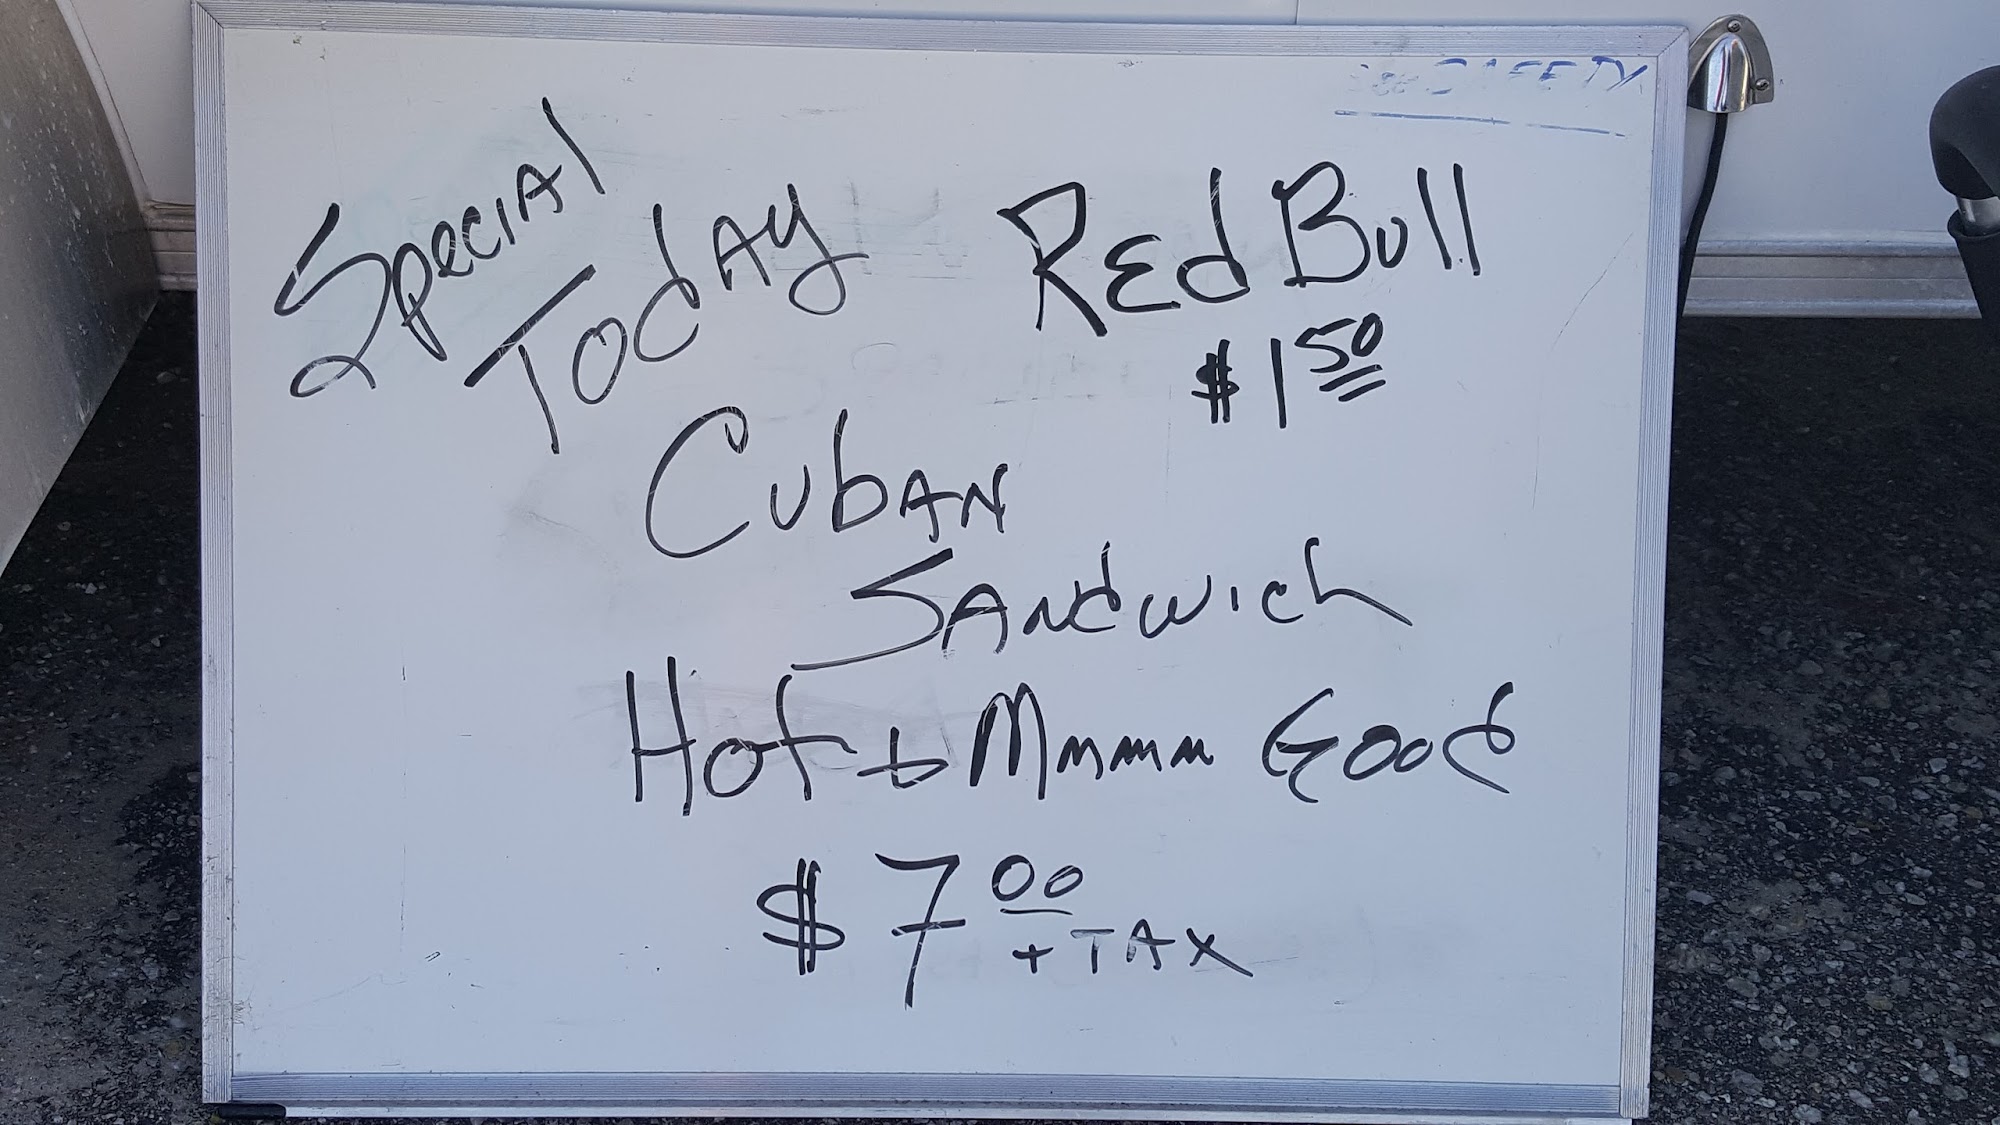 SAFETY
Special
Today
Red Bull
$1.50
Cuban
Sandwich
Hot & Mmmmm Good
$7.00
+ TAX